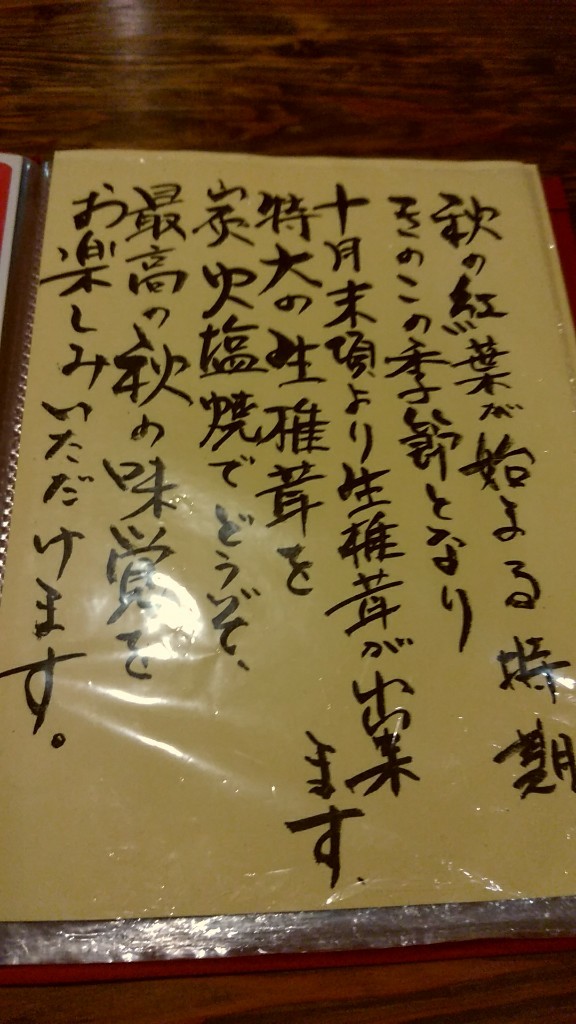 秋の紅葉が始まる時期
きのこの季節となり
十月末頃より生椎茸が出来
ます.
特大の生椎茸を
炭火塩焼でどうぞ、
最高の秋の味覚を
お楽しみいただけます。